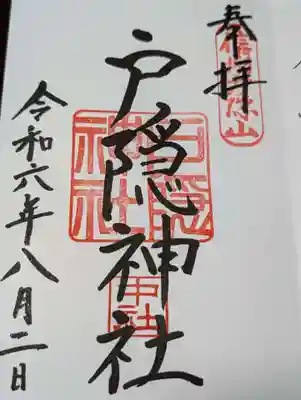 奉拝
信州戸隠山
戸隠神社
戸隠神社
中社
令和六年八月二日